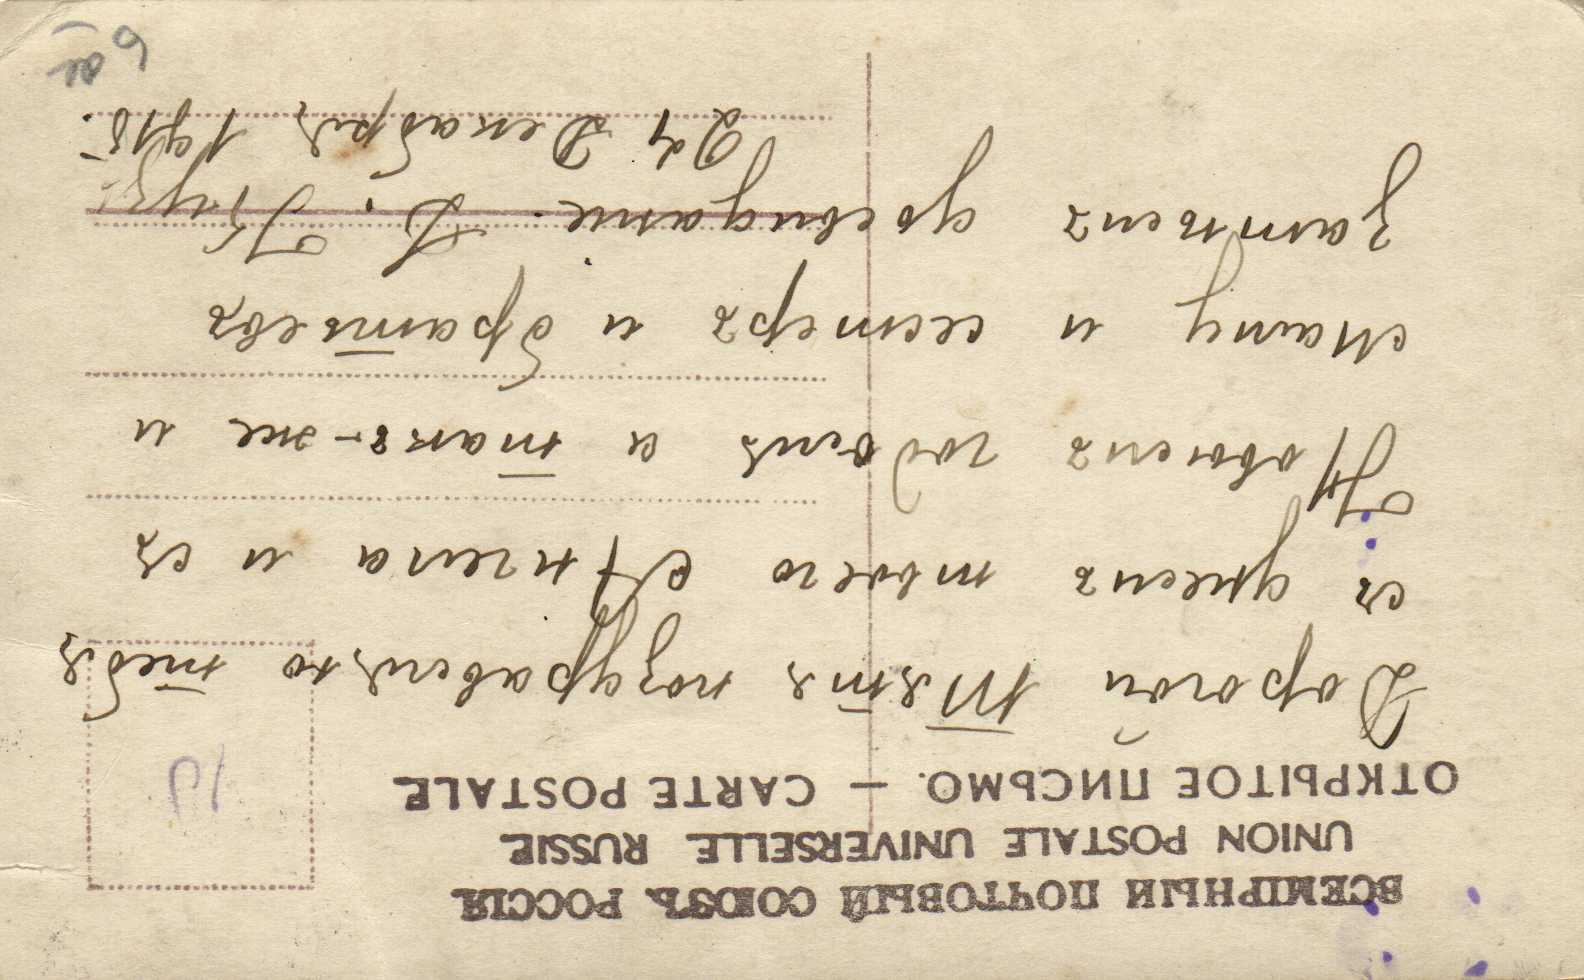 ВСЕМІРНЫЙ ПОЧТОВЫЙ СОЮЗЪ. РОССІЯ
UNION POSTALE UNIVERSELLE RUSSIE
ОТКРЫТОЕ ПИСЬМО. — CARTE POSTALE
Дорогой Тятя поздравляю тебя
съ днемъ твоего Ангела и съ
Новымъ годомъ а такъ-же и
маму и сестеръ и братьевъ
затѣмъ досвиданіе. Д.
24 Декабря 1915.
10